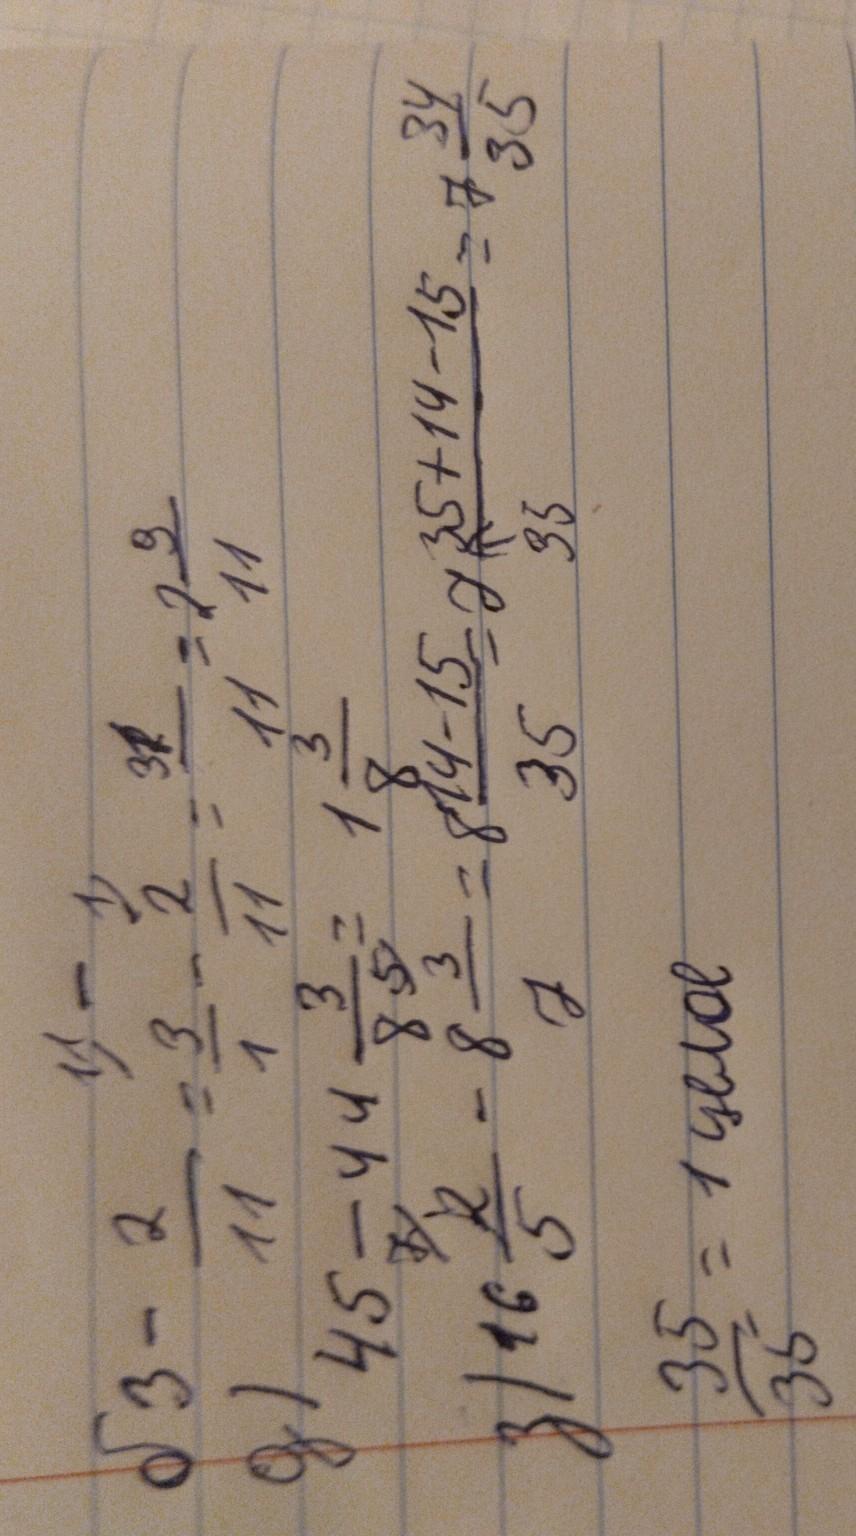 11) - 1)
б 3 - 2/11 = 3/1 - 2/11 = 31/11 = 2 9/11
д) 45 - 44 3/8 = 1 3/8
з) 16 2/5 - 8 3/7 = 8 14-15/35 = 7 35+14-15/35 = 7 34/35
35/35 = 1 целое